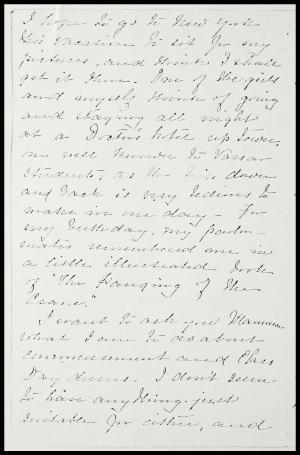 I hope to go to New York
this vacation to sit for my
pictures, and think I shall
get it then. One of the girls
and myself think of going
and staying all night
at a Doctor's hotel up town,
one well known to Vassar
students, as the trip down
and back is very tedious to
make in one day - For
my birthday, my parlor-
mates remembered me in
a little illustrated book
of "The Hanging of the
Crane."
I want to ask you Mamma
what I am to do about
commencement and Class
Day dresses. I don't seem
to have anything just
suitable for either, and